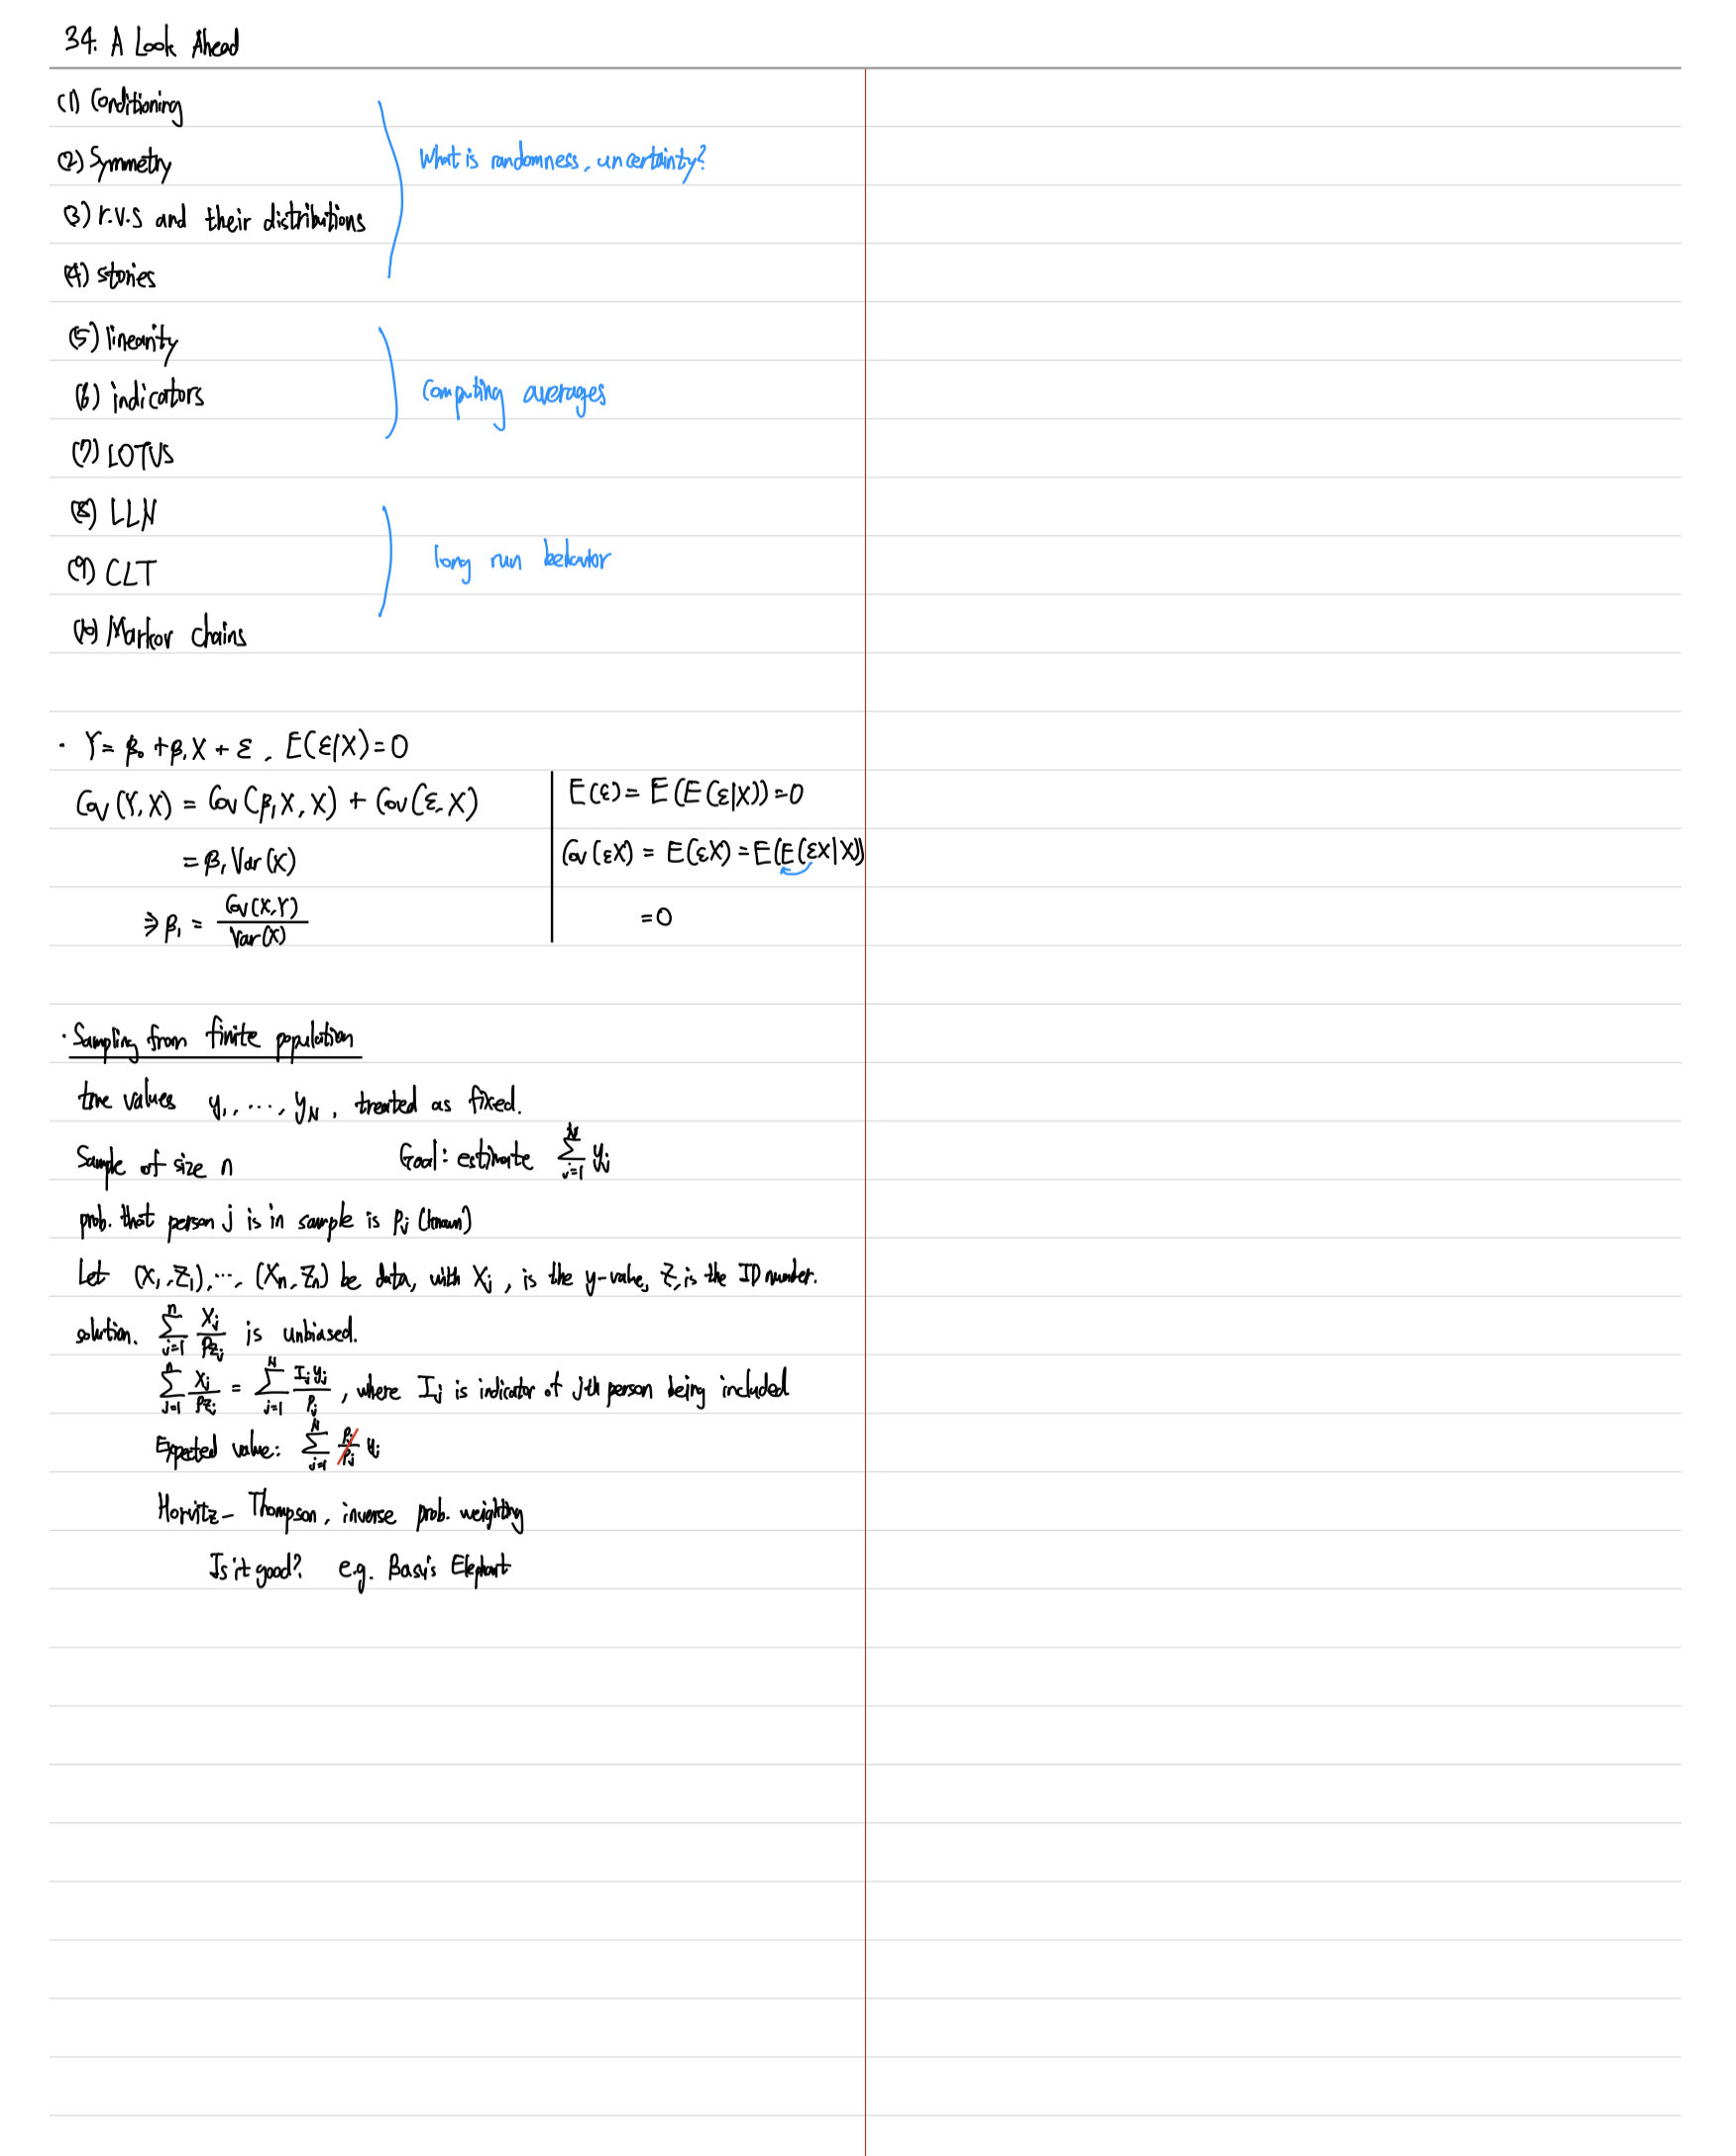 34. A Look Ahead
(1) Conditioning
(2) Symmetry
What is randomness, uncertainty?
(3) r.v.s and their distributions
(4) stories
(5) linearity
(6) indicators
Computing averages
(7) LOTUS
(8) LLN
(9) CLT
long run behavior
(10) Markov chains
· Y = β₀ + β₁X + ε, E(ε|X) = 0
Cov(Y, X) = Cov(β₁X, X) + Cov(ε, X)
= β₁ Var(X)
⇒ β₁ = Cov(X,Y) / Var(X)
E(ε) = E(E(ε|X)) = 0
Cov(εX) = E(εX) = E(E(εX|X))
= 0
· Sampling from finite population
true values y₁, ..., y_N, treated as fixed.
Sample of size n Goal: estimate Σ_{j=1}^{N} y_j
prob. that person j is in sample is p_j (known)
Let (X₁, Z₁), ..., (X_n, Z_n) be data, with X_j, is the y-value, Z, is the ID number.
solution. Σ_{j=1}^{n} X_j / p_{Z_j} is unbiased.
Σ_{j=1}^{n} X_j / p_{Z_j} = Σ_{j=1}^{N} I_j y_j / p_j, where I_j is indicator of jth person being included
Expected value: Σ_{j=1}^{N} p_j / p_j y_j
Horvitz-Thompson, inverse prob. weighting
Is it good? e.g. Basu's Elephant